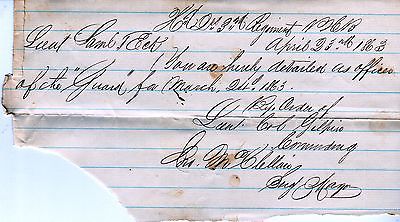 Hd Qrs 3rd Regiment P.H.B.
April 23rd 1863
Lieut Saml T Eck
You are hereby detailed as officer
of the "Guard" for March 24th 1863.
By Order of
Lieut Col Gilpin
Comanding
Jno. McClellan
Sergt Major